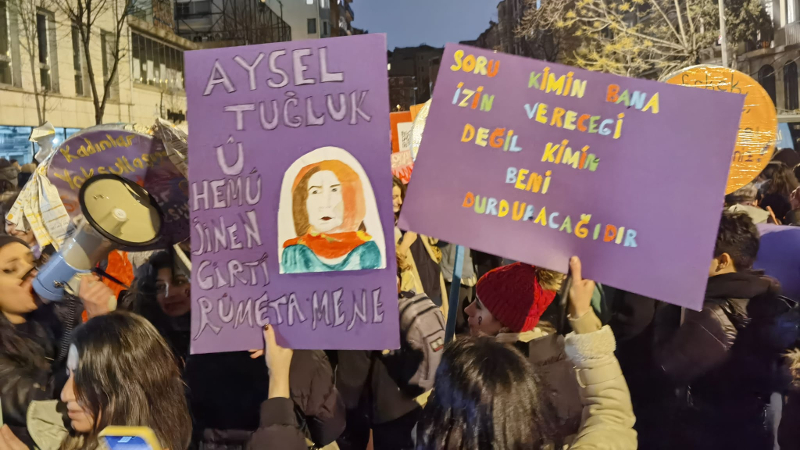 Kadınlar
AYSEL
TUĞLUK
Û
HEMÛ
JINEN
GIRTÎ
RÛMETA MENE
SORU KİMİN BANA
İZİN VERECEĞİ
DEĞİL KİMİN
BENİ
DURDURACAĞIDIR